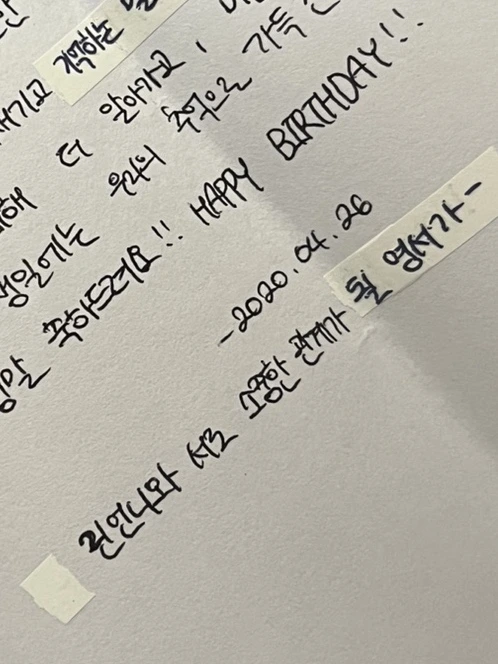 기고 기억하는
더 알아가고,
생일에는 우리의 추억으로 가득
정말 축하드려요!! HAPPY BIRTHDAY!!
_2020.04.26
린언니와 서로 소중한 관계가 될 영서가-